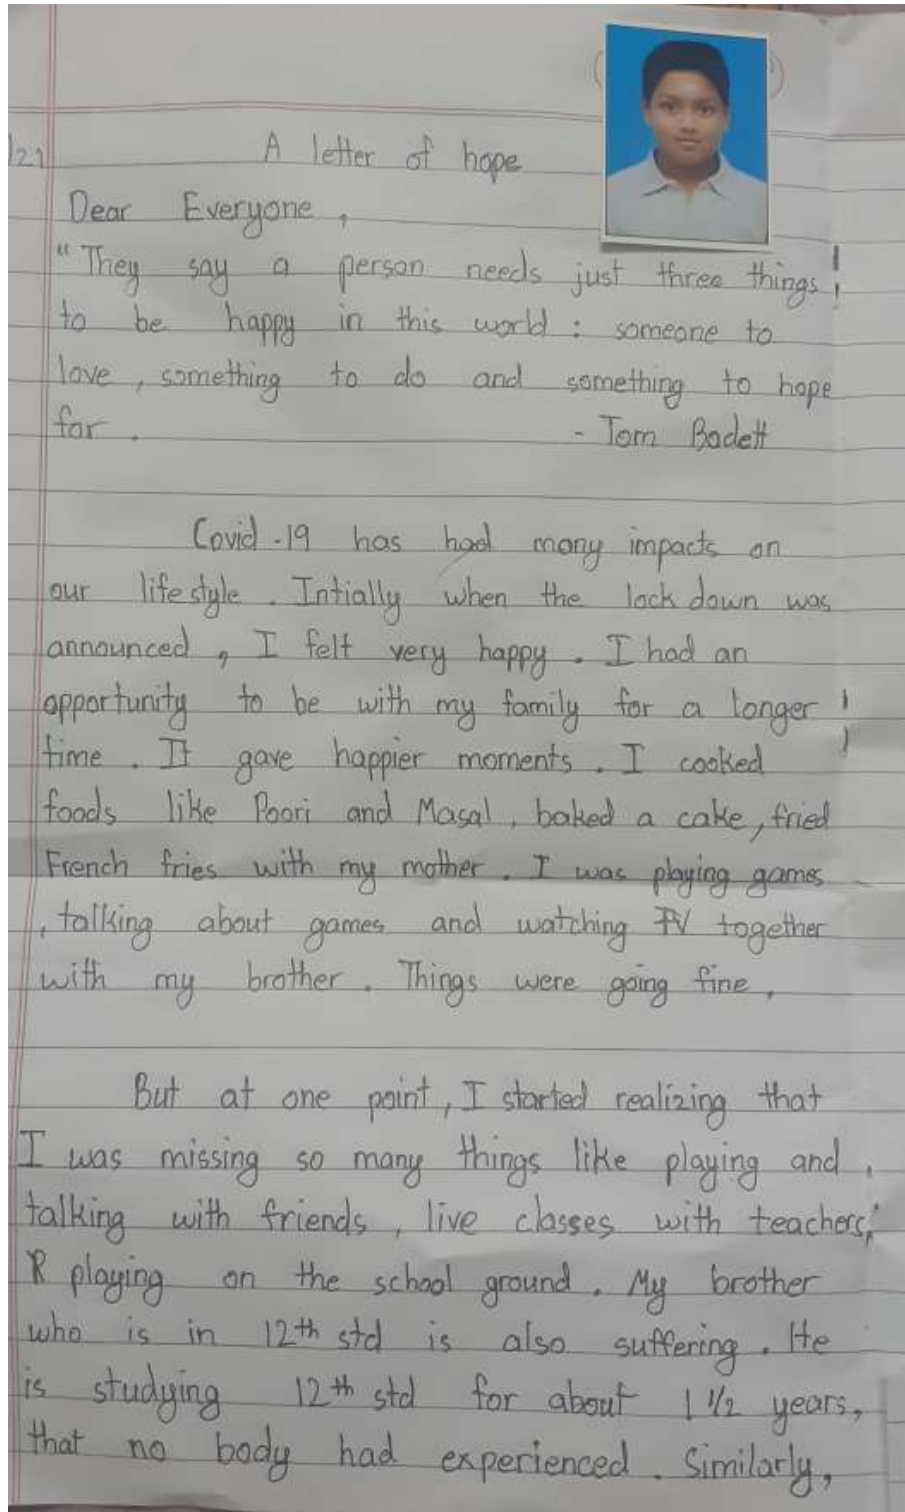 /21
A letter of hope
Dear Everyone,
"They say a person needs just three things
to be happy in this world : someone to
love, something to do and something to hope
for. - Tom Bodett
Covid -19 has had many impacts on
our life style. Intially when the lock down was
announced, I felt very happy. I had an
opportunity to be with my family for a longer
time. It gave happier moments. I cooked
foods like Poori and Masal, baked a cake, fried
French fries with my mother. I was playing games
, talking about games and watching TV together
with my brother. Things were going fine.
But at one point, I started realizing that
I was missing so many things like playing and
talking with friends, live classes with teachers,
R playing on the school ground. My brother
who is in 12th std is also suffering. He
is studying 12th std for about 1 1/2 years,
that no body had experienced. Similarly,